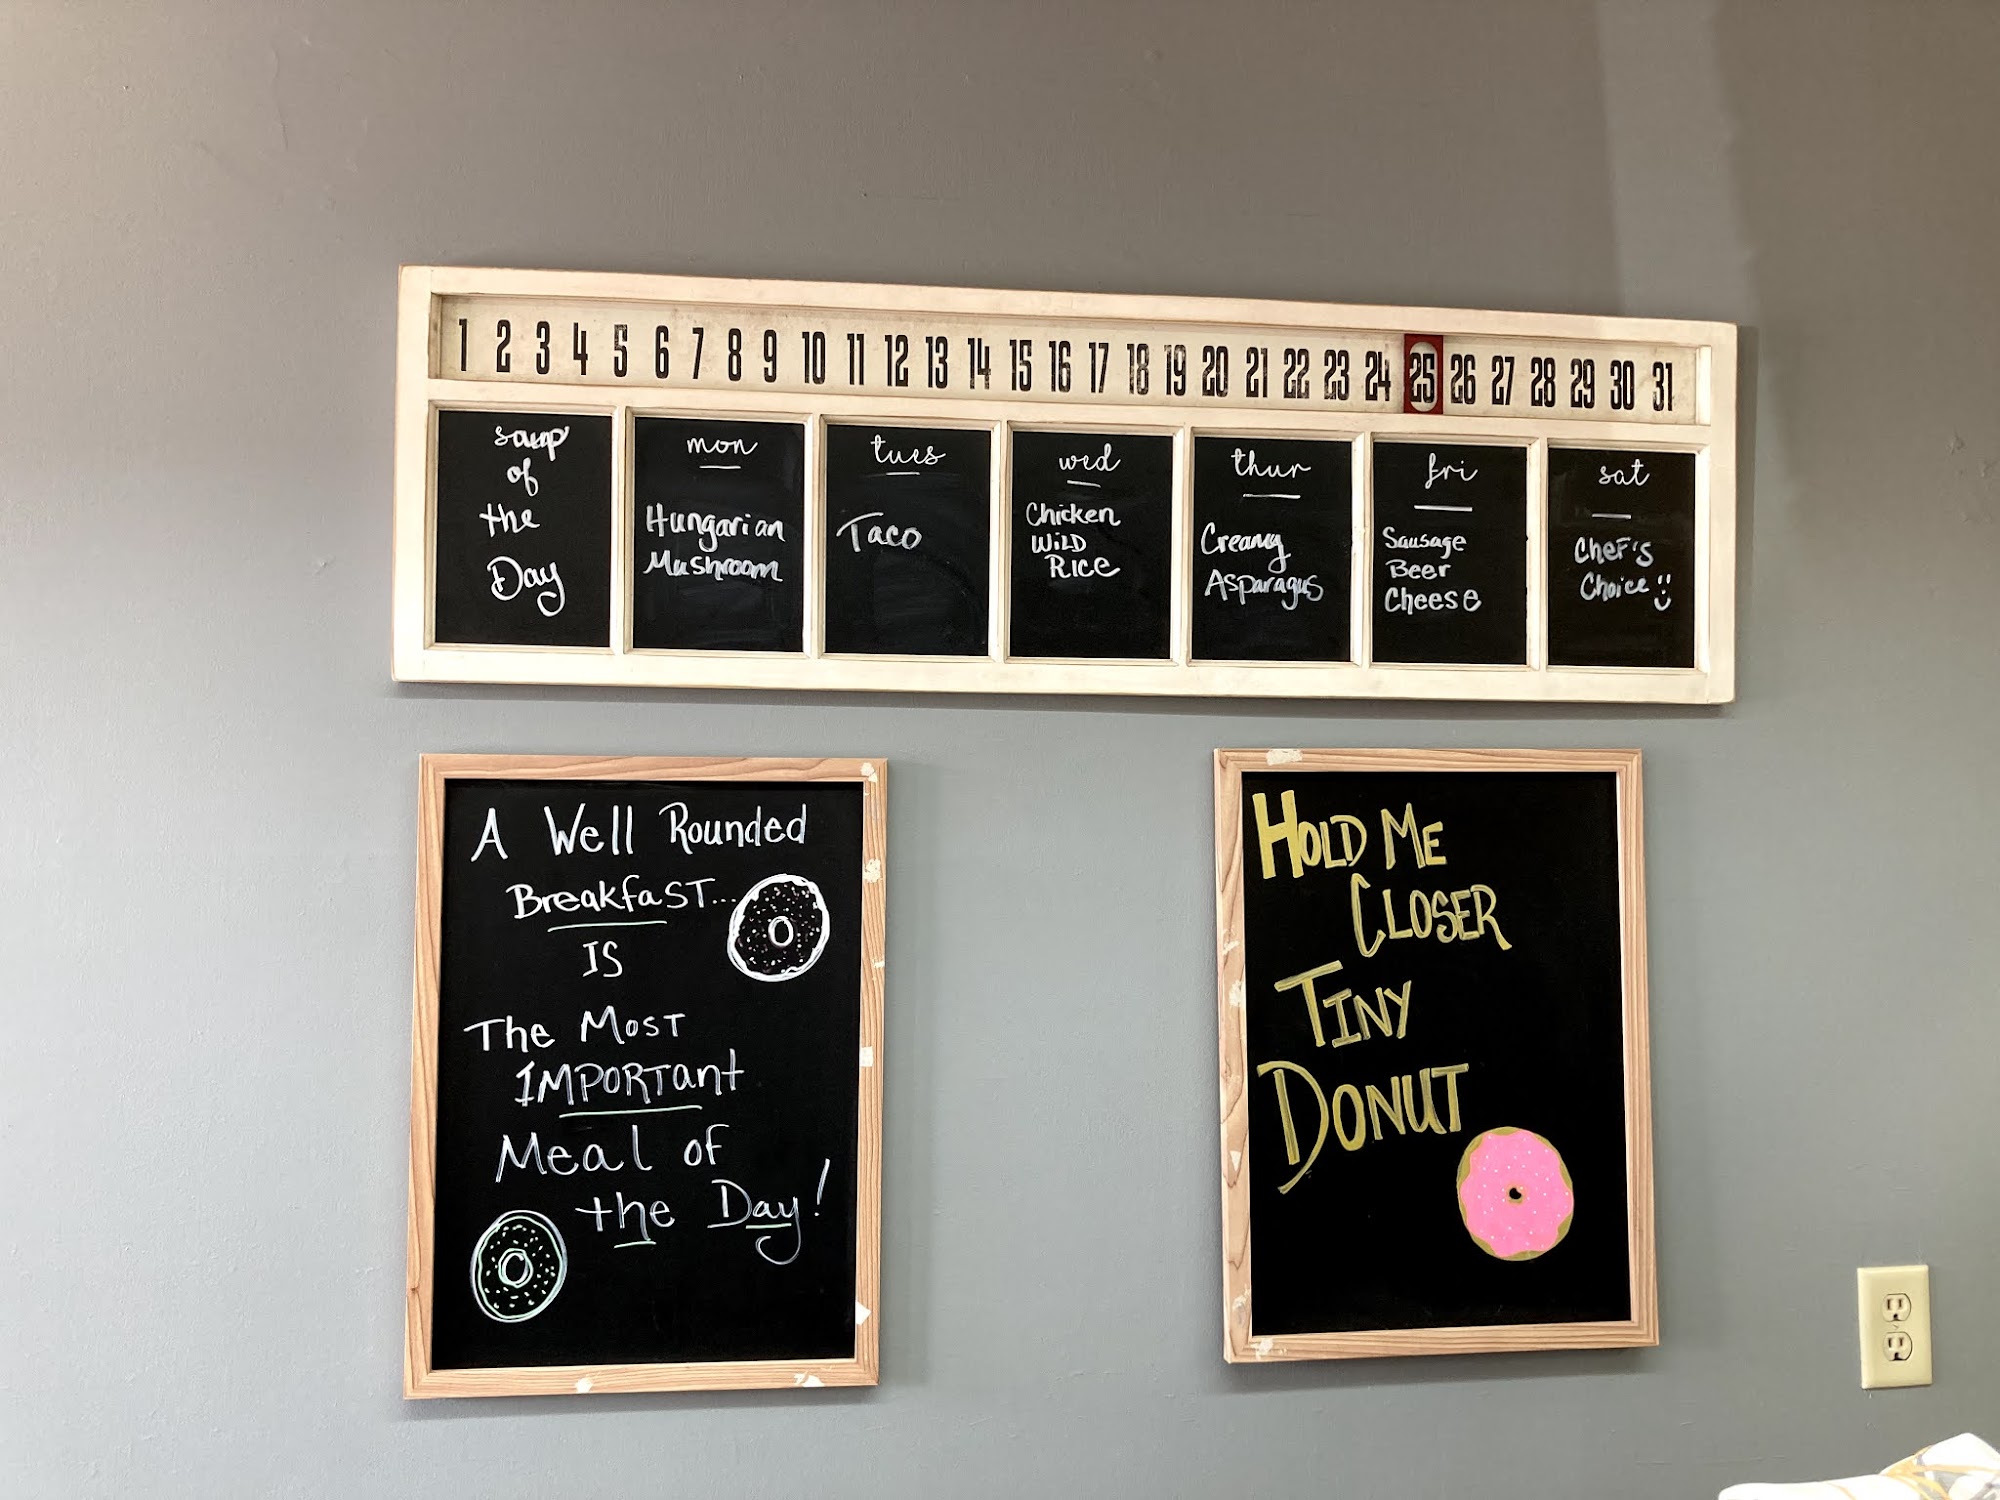 1 2 3 4 5 6 7 8 9 10 11 12 13 14 15 16 17 18 19 20 21 22 23 24 25 26 27 28 29 30 31
soup
of
the
Day
mon
Hungarian
Mushroom
tues
Taco
wed
Chicken
Wild
Rice
thur
Creamy
Asparagus
fri
Sausage
Beer
Cheese
sat
Chef's
Choice
A Well Rounded
Breakfast...
IS
The Most
IMPORTant
Meal of
the Day!
HOLD ME
CLOSER
TINY
DONUT